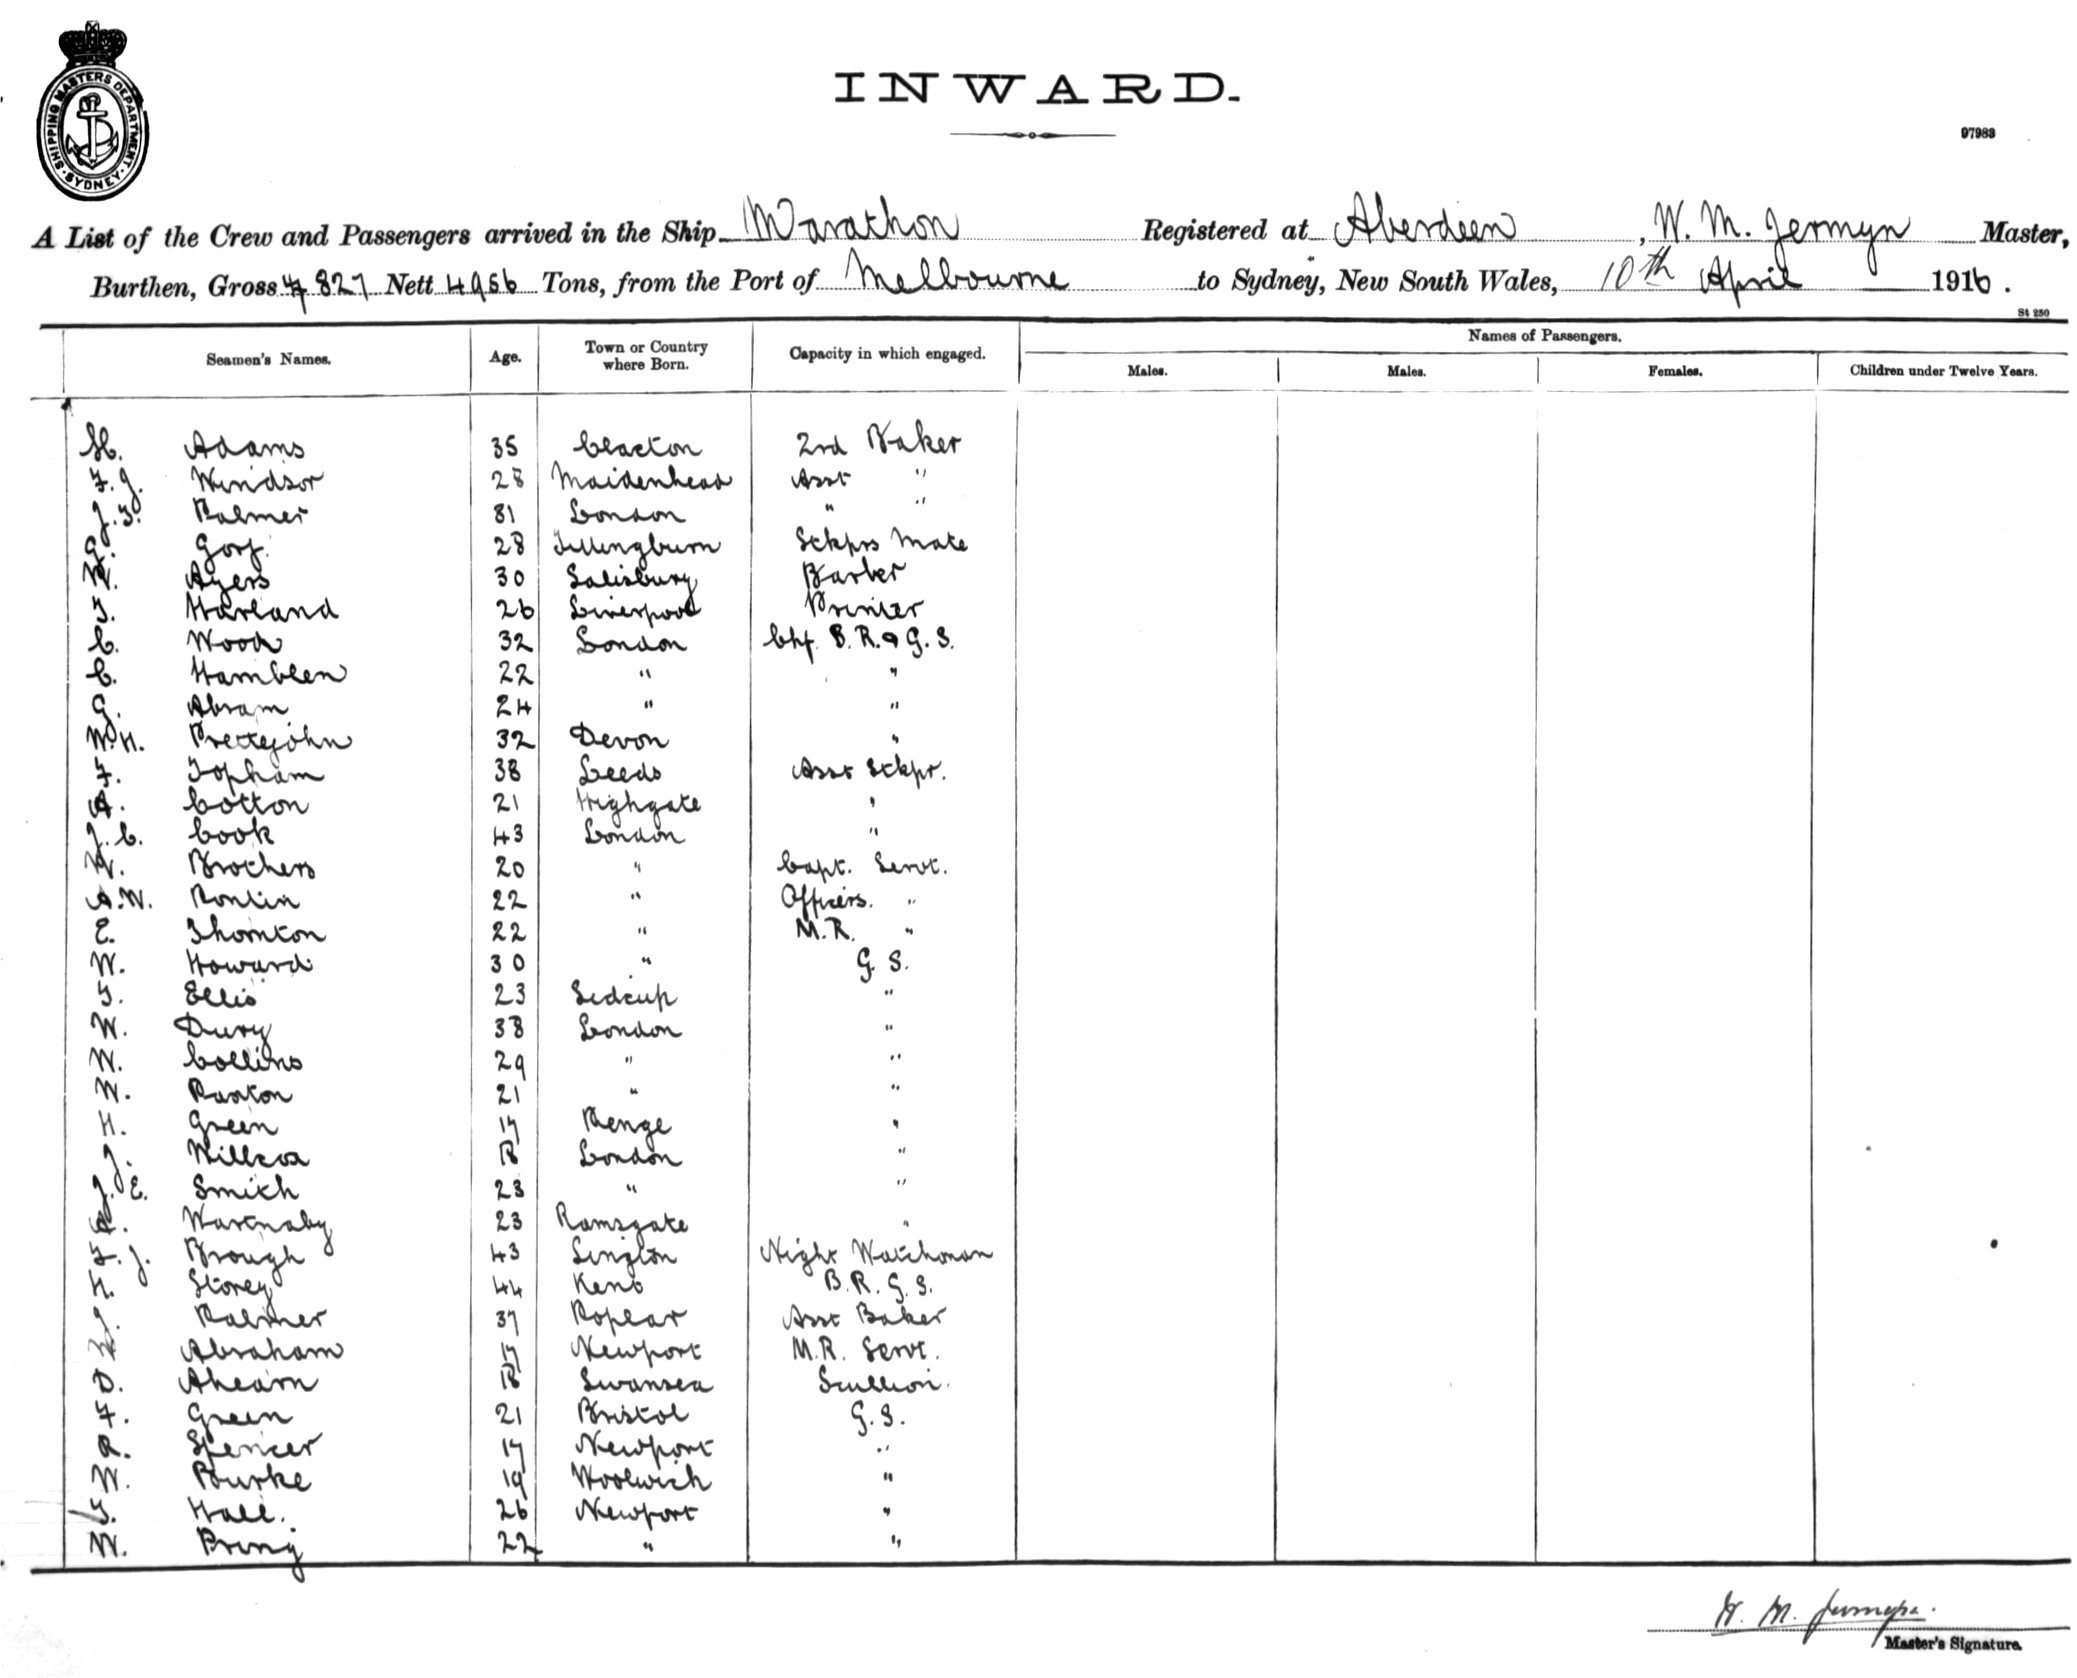 SHIPPING MASTERS DEPARTMENT · SYDNEY ·
INWARD.
97983
A List of the Crew and Passengers arrived in the Ship Marathon Registered at Aberdeen, W. M. Jermyn Master,
Burthen, Gross 7827 Nett 4956 Tons, from the Port of Melbourne to Sydney, New South Wales, 10th April 1916.
St 250
Seamen's Names. Age. Town or Country where Born. Capacity in which engaged. Names of Passengers.
Males. Males. Females. Children under Twelve Years.
H. Adams 35 Clacton 2nd Baker
F. J. Windsor 28 Maidenhead Asst "
J. T. Palmer 31 London " "
G. 28 Stkprs Mate
W. Ayers 30 Salisbury Barber
T. Harland 26 Liverpool Printer
C. Wood 32 London Chf. B. R. & G. S.
C. Hamblen 22 " "
G. Abram 24 " "
W. H. Prettejohn 32 Devon "
F. Topham 38 Leeds Asst Stkpr.
A. Cotton 21 Highgate "
J. C. Cook 43 London "
W. Brothers 20 " Capt. Servt.
A. W. Ronlin 22 " Officers. "
E. Thornton 22 " M. R. "
W. Howard 30 " G. S.
T. Ellis 23 Sidcup "
W. Dury 38 London "
W. Collins 29 " "
W. Paxton 21 " "
H. Green 17 Penge "
J. Willcox 18 London "
J. E. Smith 23 " "
A. Wartnaby 23 Ramsgate "
F. J. Brough 43 Night Watchman
H. Storey 44 Kent B. R. G. S.
J. Palmer 37 Poplar Asst Baker
W. Abraham 17 Newport M. R. Servt.
D. Ahearn 18 Swansea Scullion.
F. Green 21 Bristol G. S.
R. Spencer 17 Newport "
W. Bourke 19 Woolwich "
T. Hall. 26 Newport "
W. Pring 22 " "
W. M. Jermyn.
Master's Signature.